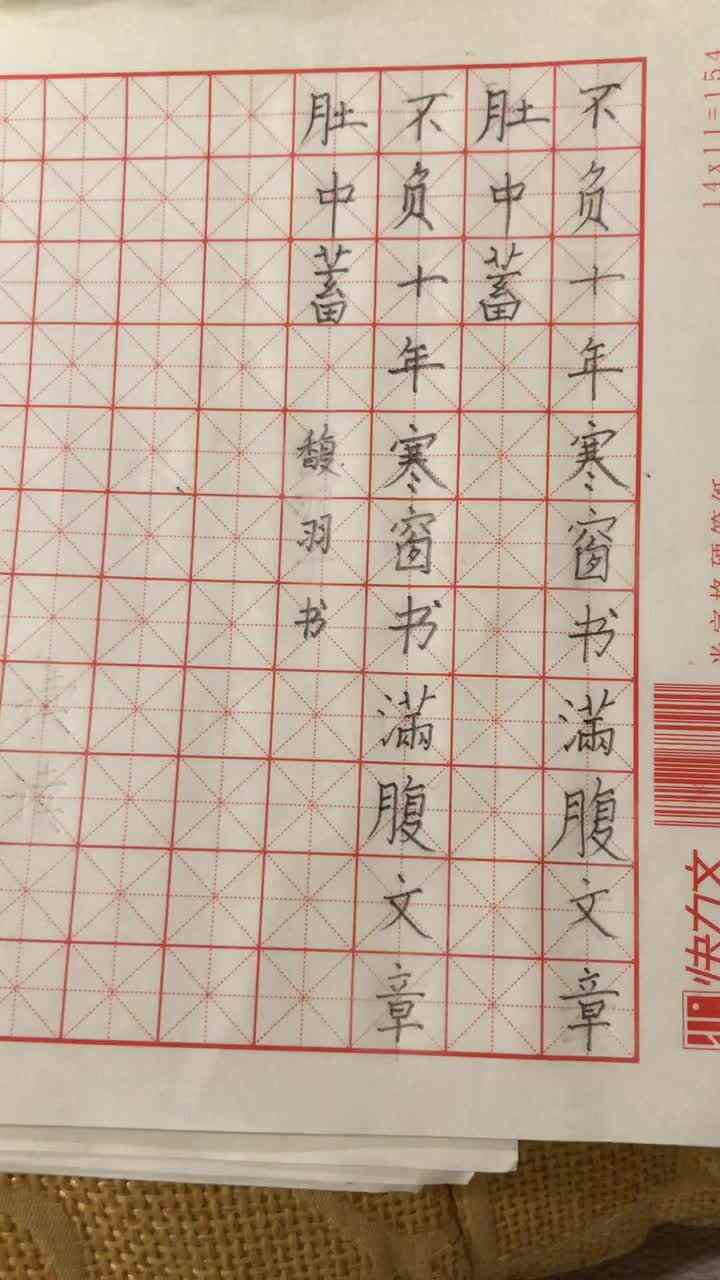 不负十年寒窗书满腹文章
肚中蓄
不负十年寒窗书满腹文章
肚中蓄
馥羽书
14x11=154
快力文